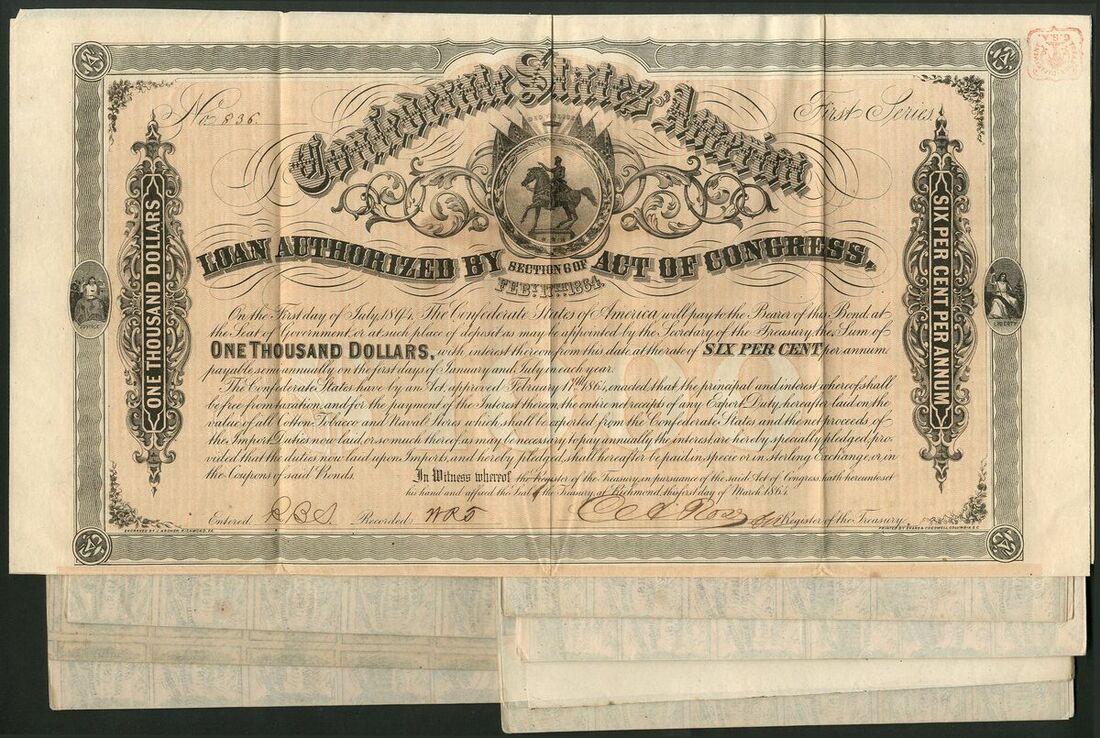 C.S.A.
No 836.
First Series.
Confederate States of America
LOAN AUTHORIZED BY SECTION 6 OF ACT OF CONGRESS,
FEBY. 17TH. 1864.
ONE THOUSAND DOLLARS
SIX PER CENT PER ANNUM
JUSTICE
LIBERTY
On the First day of July 1894, The Confederate States of America will pay to the Bearer of this Bond, at
the Seat of Government or at such place of deposit as may be appointed by the Secretary of the Treasury, the Sum of
ONE THOUSAND DOLLARS, with interest thereon from this date at the rate of SIX PER CENT per annum
payable semi annually on the first days of January and July in each year.
The Confederate States have by an Act, approved February 17th 1864, enacted that the principal and interest whereof shall
be free from taxation, and for the payment of the Interest thereon, the entire net receipts of any Export Duty, hereafter laid on the
value of all Cotton Tobacco and Naval Stores which shall be exported from the Confederate States and the net proceeds of
the Import Duties now laid, or so much thereof as may be necessary to pay annually the interest are hereby specially pledged, pro-
vided that the duties now laid upon Imports, and hereby pledged, shall hereafter be paid in specie or in sterling Exchange, or in
the Coupons of said Bonds.
In Witness whereof the Register of the Treasury, in pursuance of the said Act of Congress, hath hereunto set
his hand and affixed the Seal of the Treasury, at Richmond, this first day of March 1864.
Entered R.B.S. Recorded WRD C A Rose Register of the Treasury.
ENGRAVED BY J. ARCHER, RICHMOND, VA.
PRINTED BY EVANS & COGSWELL COLUMBIA S.C.